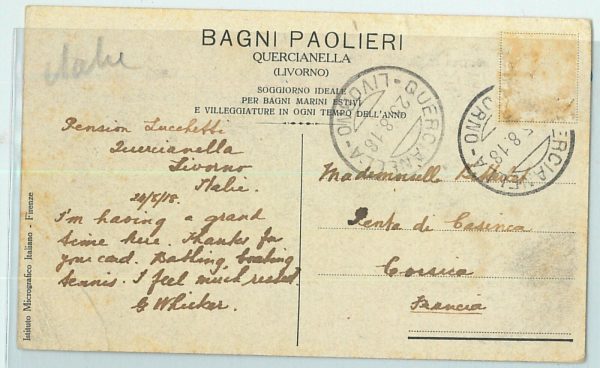 Italie
BAGNI PAOLIERI
QUERCIANELLA
(LIVORNO)
SOGGIORNO IDEALE
PER BAGNI MARINI ESTIVI
E VILLEGGIATURE IN OGNI TEMPO DELL'ANNO
QUERCIANELLA - LIVORNO
25.8.18
QUERCIANELLA - LIVORNO
5.8.18
Pension Lucchetti
Quercianella
Livorno
Italie.
24/5/18.
I'm having a grand
time here. Thanks for
your card. Bathing, boating
tennis. I feel much rested.
G Whicker.
Mademoiselle
Penta di Casinca
Corsica
Francia
Istituto Micrografico Italiano - Firenze